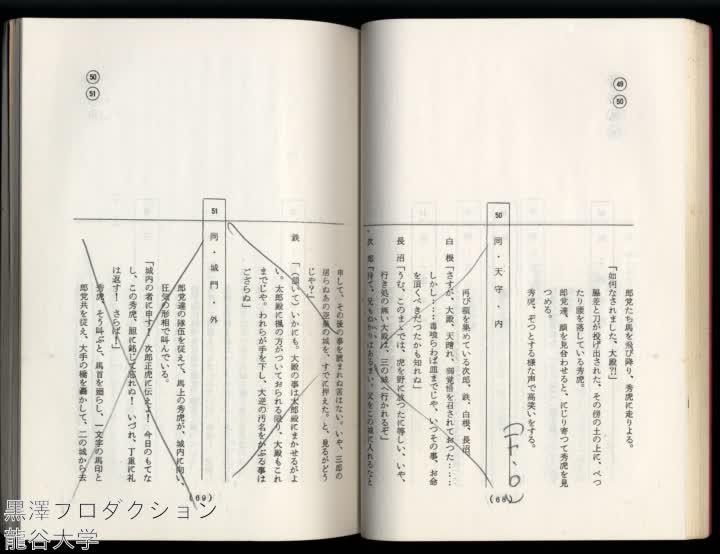 ㊾
㊿
郎党たち馬を飛び降り、秀虎に走りよる。
「如何なされました、大殿⁈」
脇差と刀が投げ出された、その傍の土の上に、ぺつ
たり腰を落している秀虎。
郎党達、顔を見合わせると、にじり寄つて秀虎を見
つめる。
秀虎、ぞつとする様な声で高笑いをする。
50 同・天守・内
再び額を集めている次郎、鉄、白根、長沼。
白根「さすが、大殿、天晴れ、御覚悟を召されておつた……
しかし……毒喰らわば皿までじや、いつその事、お命
を頂くべきだつたかも知れぬ」
長沼「うむ、このまゝでは、虎を野に放つたに等しい、いや、
行き処の無い大殿は、三の城へ行かれるぞ」
次郎「待て、兄もぬかりはあるまい。父をこの城に入れるなと
(68)
㊿
51
申して、その後の事を読まれぬ筈はない。いや、三郎の
居らぬあの三郎の城を、すでに押えた。と、見るがどう
じや?」
鉄「(頷いて)いかにも。大殿の事は太郎殿にまかせるがよ
い。太郎殿に楓の方がついておられる限り、大殿もこれ
までじや。われらが手を下し、大逆の汚名をかぶる事は
ござらぬ」
51 同・城門・外
郎党達の隊伍を従えて、馬上の秀虎が、城内に向い、
狂気の形相で叫んでいる。
「城内の者に申す! 次郎正虎に伝えよ! 今日のもてな
し、この秀虎、胆に銘じて忘れぬ! いづれ、丁重に礼
は返す! さらば!」
秀虎、そう叫ぶと、馬首を廻らし、一文字の馬印と
郎党共を従え、大手の橋を轟かして、二の城から去
(69)
黒澤プロダクション
龍谷大学